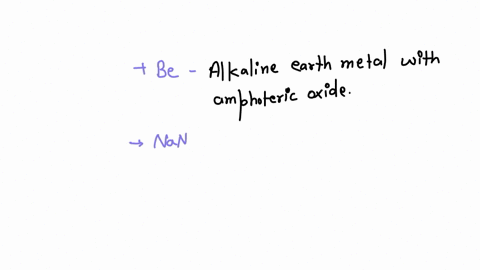 → Be - Alkaline earth metal with
amphoteric oxide.
→ NaN